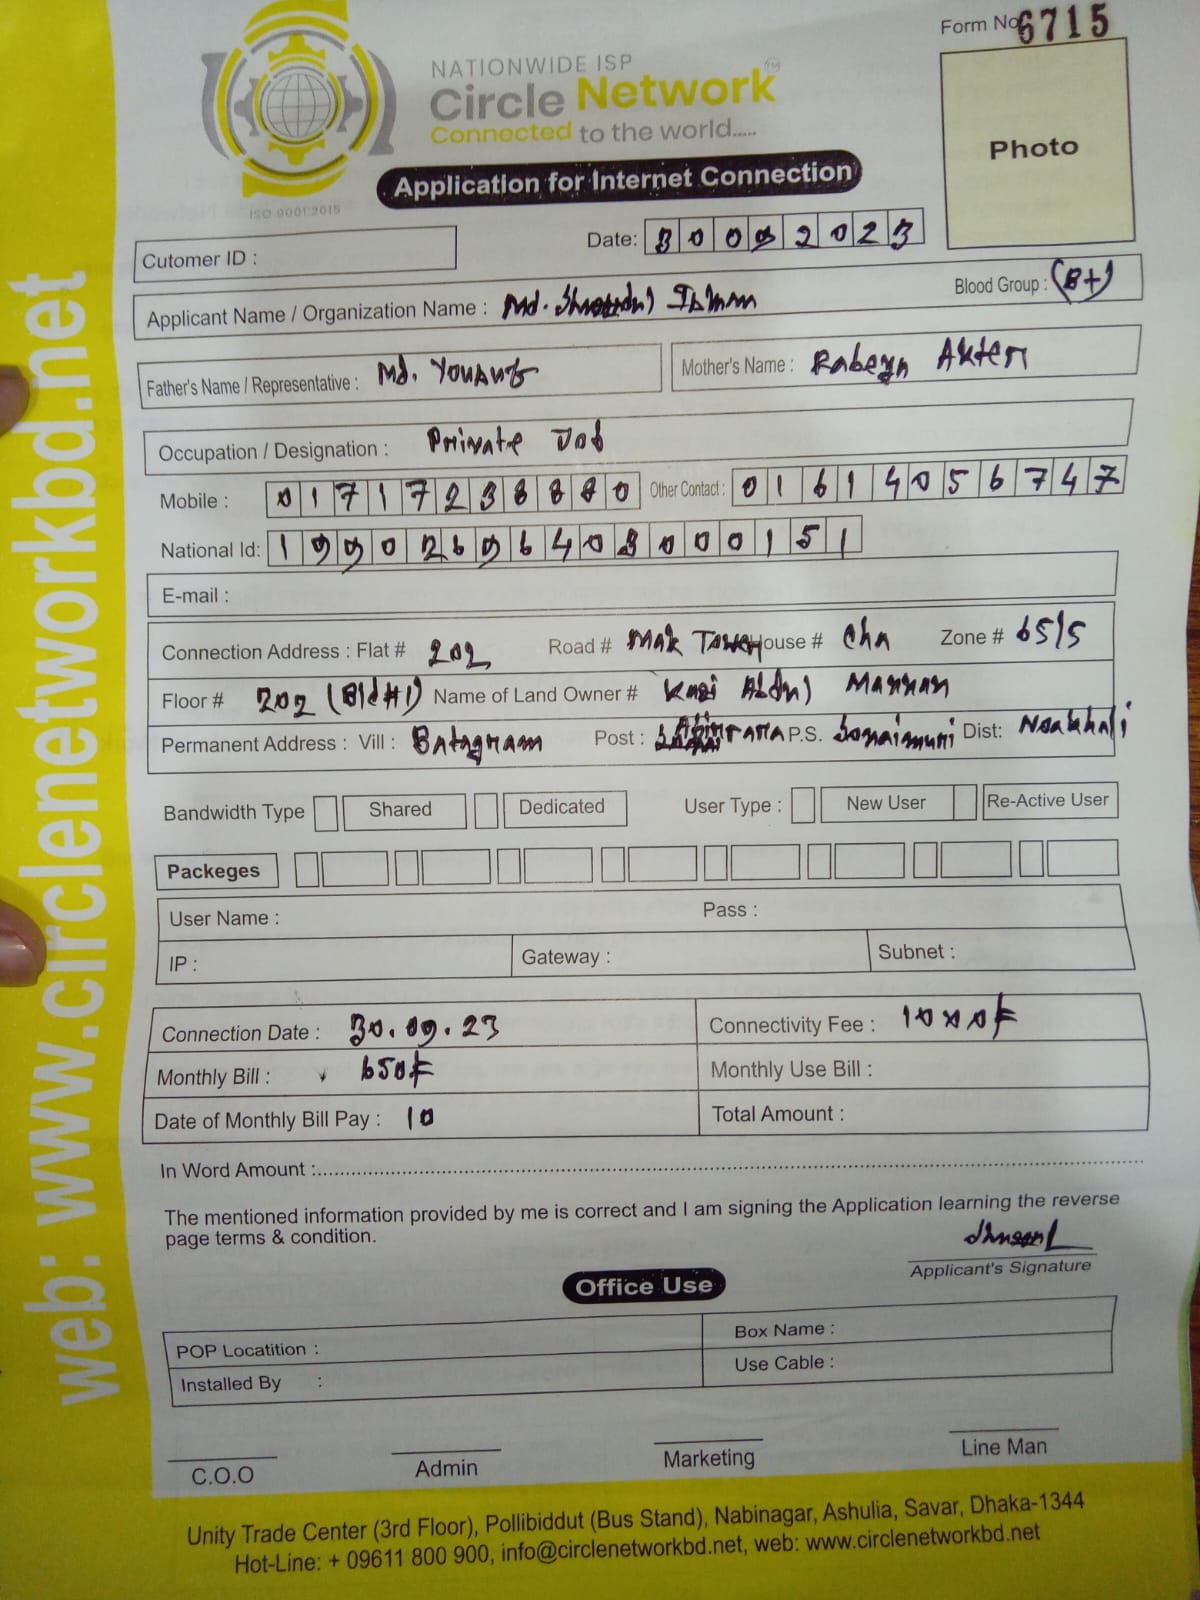 Form No 6715
NATIONWIDE ISP
Circle Network
TM
Connected to the world.....
ISO 9001:2015
Photo
Application for Internet Connection
Cutomer ID :
Date: 30092023
Applicant Name / Organization Name : Md.
Blood Group : (B+)
Father's Name / Representative : Md.
Mother's Name : Rabeya Akter
Occupation / Designation : Private Job
Mobile : 01717238880 Other Contact : 01614056747
National Id: 19902696403000151
E-mail :
Connection Address : Flat # 202 Road # Mak Tower House # Cha Zone # 65/5
Floor # 202 (Bld#1) Name of Land Owner # Kazi Abdul Mannan
Permanent Address : Vill : Batagram Post : P.S. Sonaimuri Dist: Noakhali
Bandwidth Type Shared Dedicated User Type : New User Re-Active User
Packeges
User Name : Pass :
IP : Gateway : Subnet :
Connection Date : 30.09.23 Connectivity Fee : 1000/=
Monthly Bill : 650/= Monthly Use Bill :
Date of Monthly Bill Pay : 10 Total Amount :
In Word Amount :
The mentioned information provided by me is correct and I am signing the Application learning the reverse
page terms & condition.
Applicant's Signature
Office Use
POP Locatition : Box Name :
Installed By : Use Cable :
C.O.O Admin Marketing Line Man
Unity Trade Center (3rd Floor), Pollibiddut (Bus Stand), Nabinagar, Ashulia, Savar, Dhaka-1344
Hot-Line: + 09611 800 900, info@circlenetworkbd.net, web: www.circlenetworkbd.net
web: www.circlenetworkbd.net